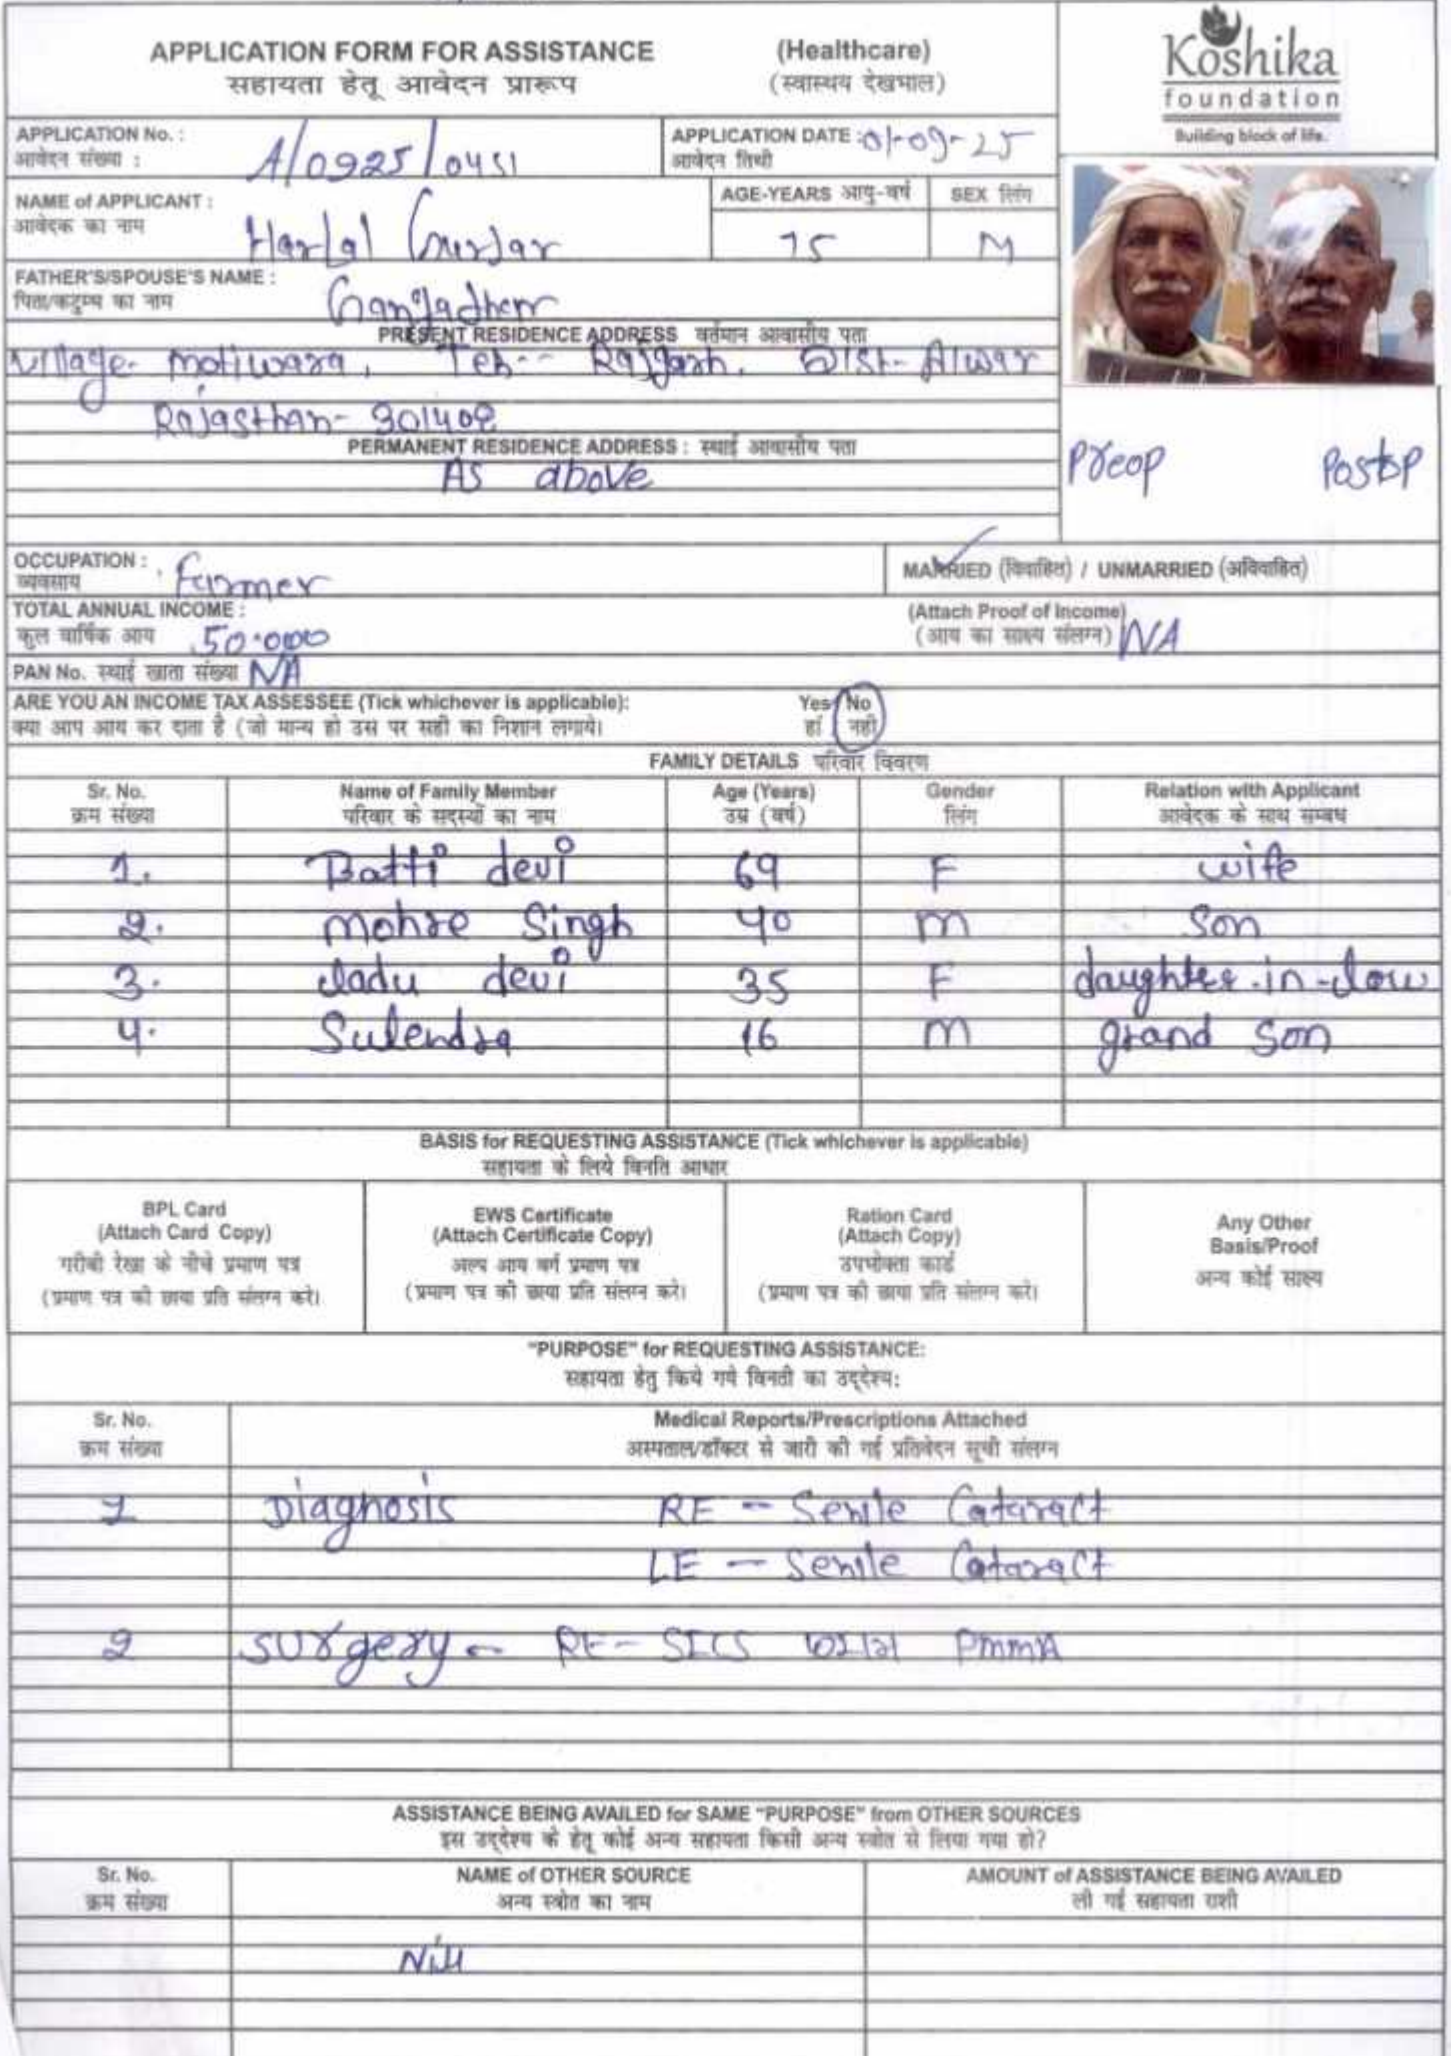 APPLICATION FORM FOR ASSISTANCE (Healthcare)
सहायता हेतू आवेदन प्रारूप (स्वास्थय देखभाल)
Koshika
foundation
Building block of life.
APPLICATION No. : A/0925/0451
आवेदन संख्या :
APPLICATION DATE : 01-09-25
आवेदन तिथी
NAME of APPLICANT : Harlal Gurjar
आवेदक का नाम
AGE-YEARS आयु-वर्ष 75
SEX लिंग M
FATHER'S/SPOUSE'S NAME :
पिता/कटुम्ब का नाम
PRESENT RESIDENCE ADDRESS वर्तमान आवासीय पता
Village- motiwara, Teh-- Rajgarh, Dist- Alwar
Rajasthan- 301408
PERMANENT RESIDENCE ADDRESS : स्थाई आवासीय पता
As above
Preop Postop
OCCUPATION : Farmer
व्यवसाय
MARRIED (विवाहित) / UNMARRIED (अविवाहित)
TOTAL ANNUAL INCOME :
कुल वार्षिक आय 50.000
(Attach Proof of Income)
(आय का साक्ष्य संलग्न) NA
PAN No. स्थाई खाता संख्या NA
ARE YOU AN INCOME TAX ASSESSEE (Tick whichever is applicable): Yes / No
क्या आप आय कर दाता है (जो मान्य हो उस पर सही का निशान लगाये। हां नही
FAMILY DETAILS परिवार विवरण
Sr. No. Name of Family Member Age (Years) Gender Relation with Applicant
क्रम संख्या परिवार के सदस्यों का नाम उम्र (वर्ष) लिंग आवेदक के साथ सम्बध
1. Batti devi 69 F wife
2. Mohre Singh 40 M Son
3. Jadu devi 35 F daughter-in-low
4. Sulendra 16 M grand Son
BASIS for REQUESTING ASSISTANCE (Tick whichever is applicable)
सहायता के लिये विनति आधार
BPL Card
(Attach Card Copy)
गरीबी रेखा के नीचे प्रमाण पत्र
(प्रमाण पत्र की छाया प्रति संलग्न करे।
EWS Certificate
(Attach Certificate Copy)
अल्प आय वर्ग प्रमाण पत्र
(प्रमाण पत्र की छाया प्रति संलग्न करे।
Ration Card
(Attach Copy)
उपभोक्ता कार्ड
(प्रमाण पत्र की छाया प्रति संलग्न करे।
Any Other
Basis/Proof
अन्य कोई साक्ष्य
"PURPOSE" for REQUESTING ASSISTANCE:
सहायता हेतु किये गये विनती का उद्देश्य:
Sr. No. Medical Reports/Prescriptions Attached
क्रम संख्या अस्पताल/डॉक्टर से जारी की गई प्रतिवेदन सूची संलग्न
1 Diagnosis RE - Senile Cataract
LE - Senile Cataract
2 Surgery - RE - SICS PMMA
ASSISTANCE BEING AVAILED for SAME "PURPOSE" from OTHER SOURCES
इस उद्देश्य के हेतू कोई अन्य सहायता किसी अन्य स्त्रोत से लिया गया हो?
Sr. No. NAME of OTHER SOURCE AMOUNT of ASSISTANCE BEING AVAILED
क्रम संख्या अन्य स्त्रोत का नाम ली गई सहायता राशी
Nill